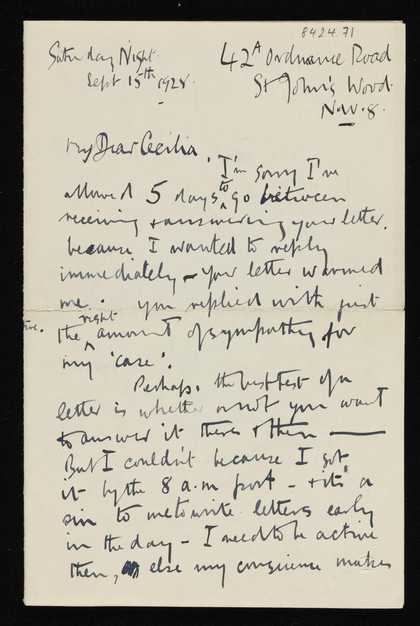 8424.71
Saturday Night
Sept 15th 1928.
42A Ordnance Road
St John's Wood
N.W.8.
My Dear Cecilia,
I'm sorry I've
allowed 5 days to go between
receiving & answering your letter,
because I wanted to reply
immediately – your letter warmed
me. You replied with just
the right amount of sympathy for
my 'case'.
Perhaps the best test of a
letter is whether or not you want
to answer it there & then —
But I couldn't because I got
it by the 8 a.m post – & it's a
sin to me to write letters early
in the day – I need to be active
then, or else my conscience makes